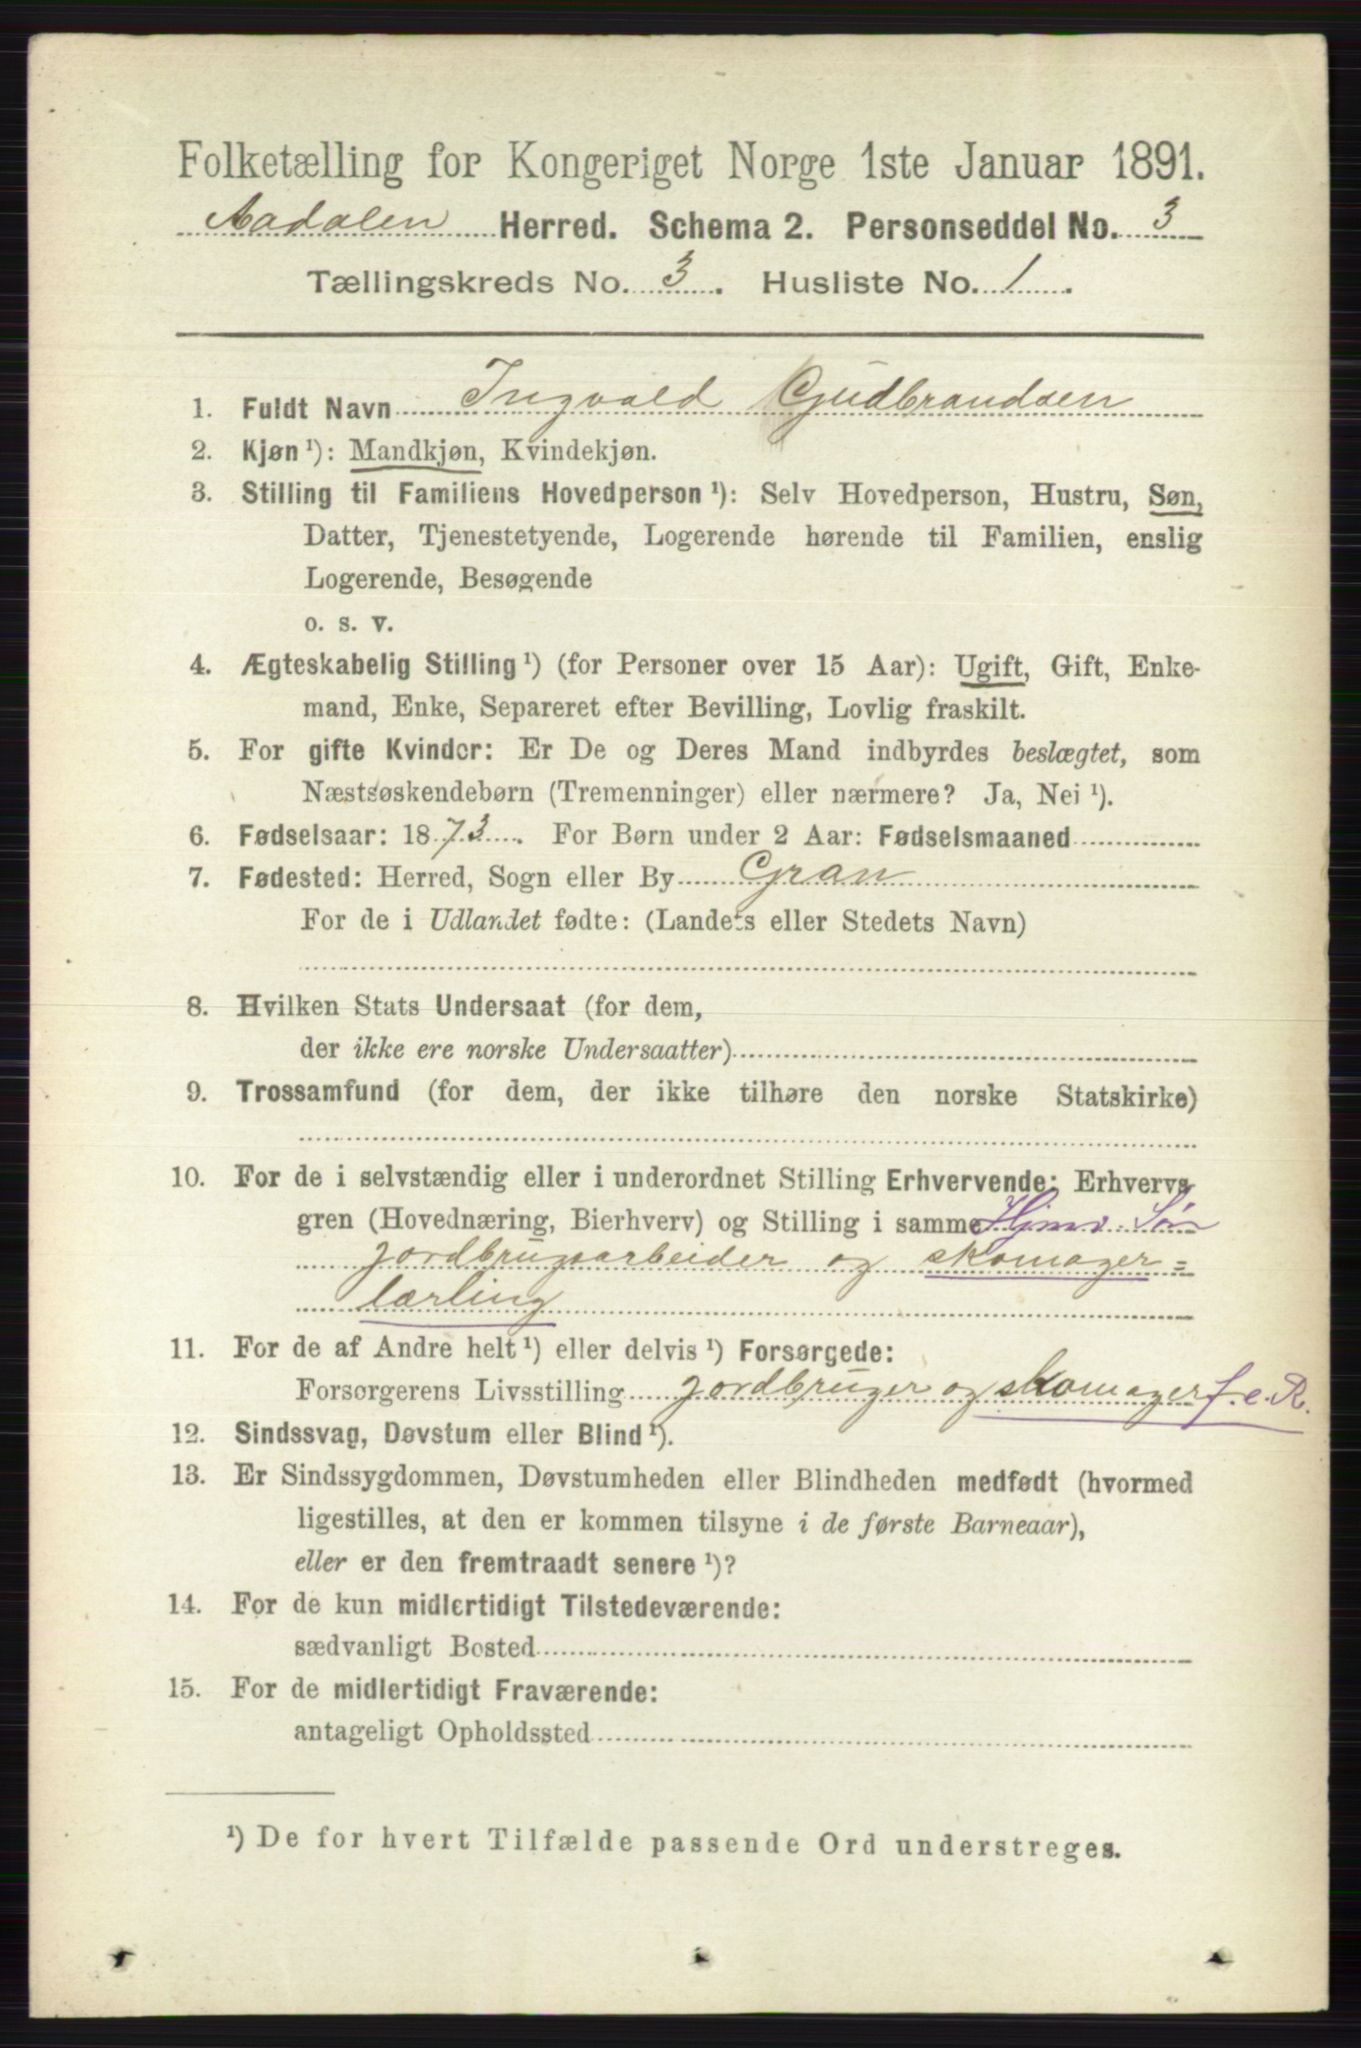 Folketælling for Kongeriget Norge 1ste Januar 1891.
Aadalen Herred. Schema 2. Personseddel No. 3
Tællingskreds No. 3. Husliste No. 1.
1. Fuldt Navn Ingvald Gudbrandsen
2. Kjøn ¹): Mandkjøn, Kvindekjøn.
3. Stilling til Familiens Hovedperson ¹): Selv Hovedperson, Hustru, Søn,
Datter, Tjenestetyende, Logerende hørende til Familien, enslig
Logerende, Besøgende
o. s. v.
4. Ægteskabelig Stilling ¹) (for Personer over 15 Aar): Ugift, Gift, Enke-
mand, Enke, Separeret efter Bevilling, Lovlig fraskilt.
5. For gifte Kvinder: Er De og Deres Mand indbyrdes beslægtet, som
Næstsøskendebørn (Tremenninger) eller nærmere? Ja, Nei ¹).
6. Fødselsaar: 1873. For Børn under 2 Aar: Fødselsmaaned
7. Fødested: Herred, Sogn eller By Gran
For de i Udlandet fødte: (Landets eller Stedets Navn)
8. Hvilken Stats Undersaat (for dem,
der ikke ere norske Undersaatter)
9. Trossamfund (for dem, der ikke tilhøre den norske Statskirke)
10. For de i selvstændig eller i underordnet Stilling Erhvervende: Erhvervs
gren (Hovednæring, Bierhverv) og Stilling i samme Hjmv. Søn
jordbrugsarbeider og skomager=
lærling
11. For de af Andre helt ¹) eller delvis ¹) Forsørgede:
Forsørgerens Livsstilling jordbruger og skomager f. e. R.
12. Sindssvag, Døvstum eller Blind ¹).
13. Er Sindssygdommen, Døvstumheden eller Blindheden medfødt (hvormed
ligestilles, at den er kommen tilsyne i de første Barneaar),
eller er den fremtraadt senere ¹)?
14. For de kun midlertidigt Tilstedeværende:
sædvanligt Bosted
15. For de midlertidigt Fraværende:
antageligt Opholdssted
¹) De for hvert Tilfælde passende Ord understreges.